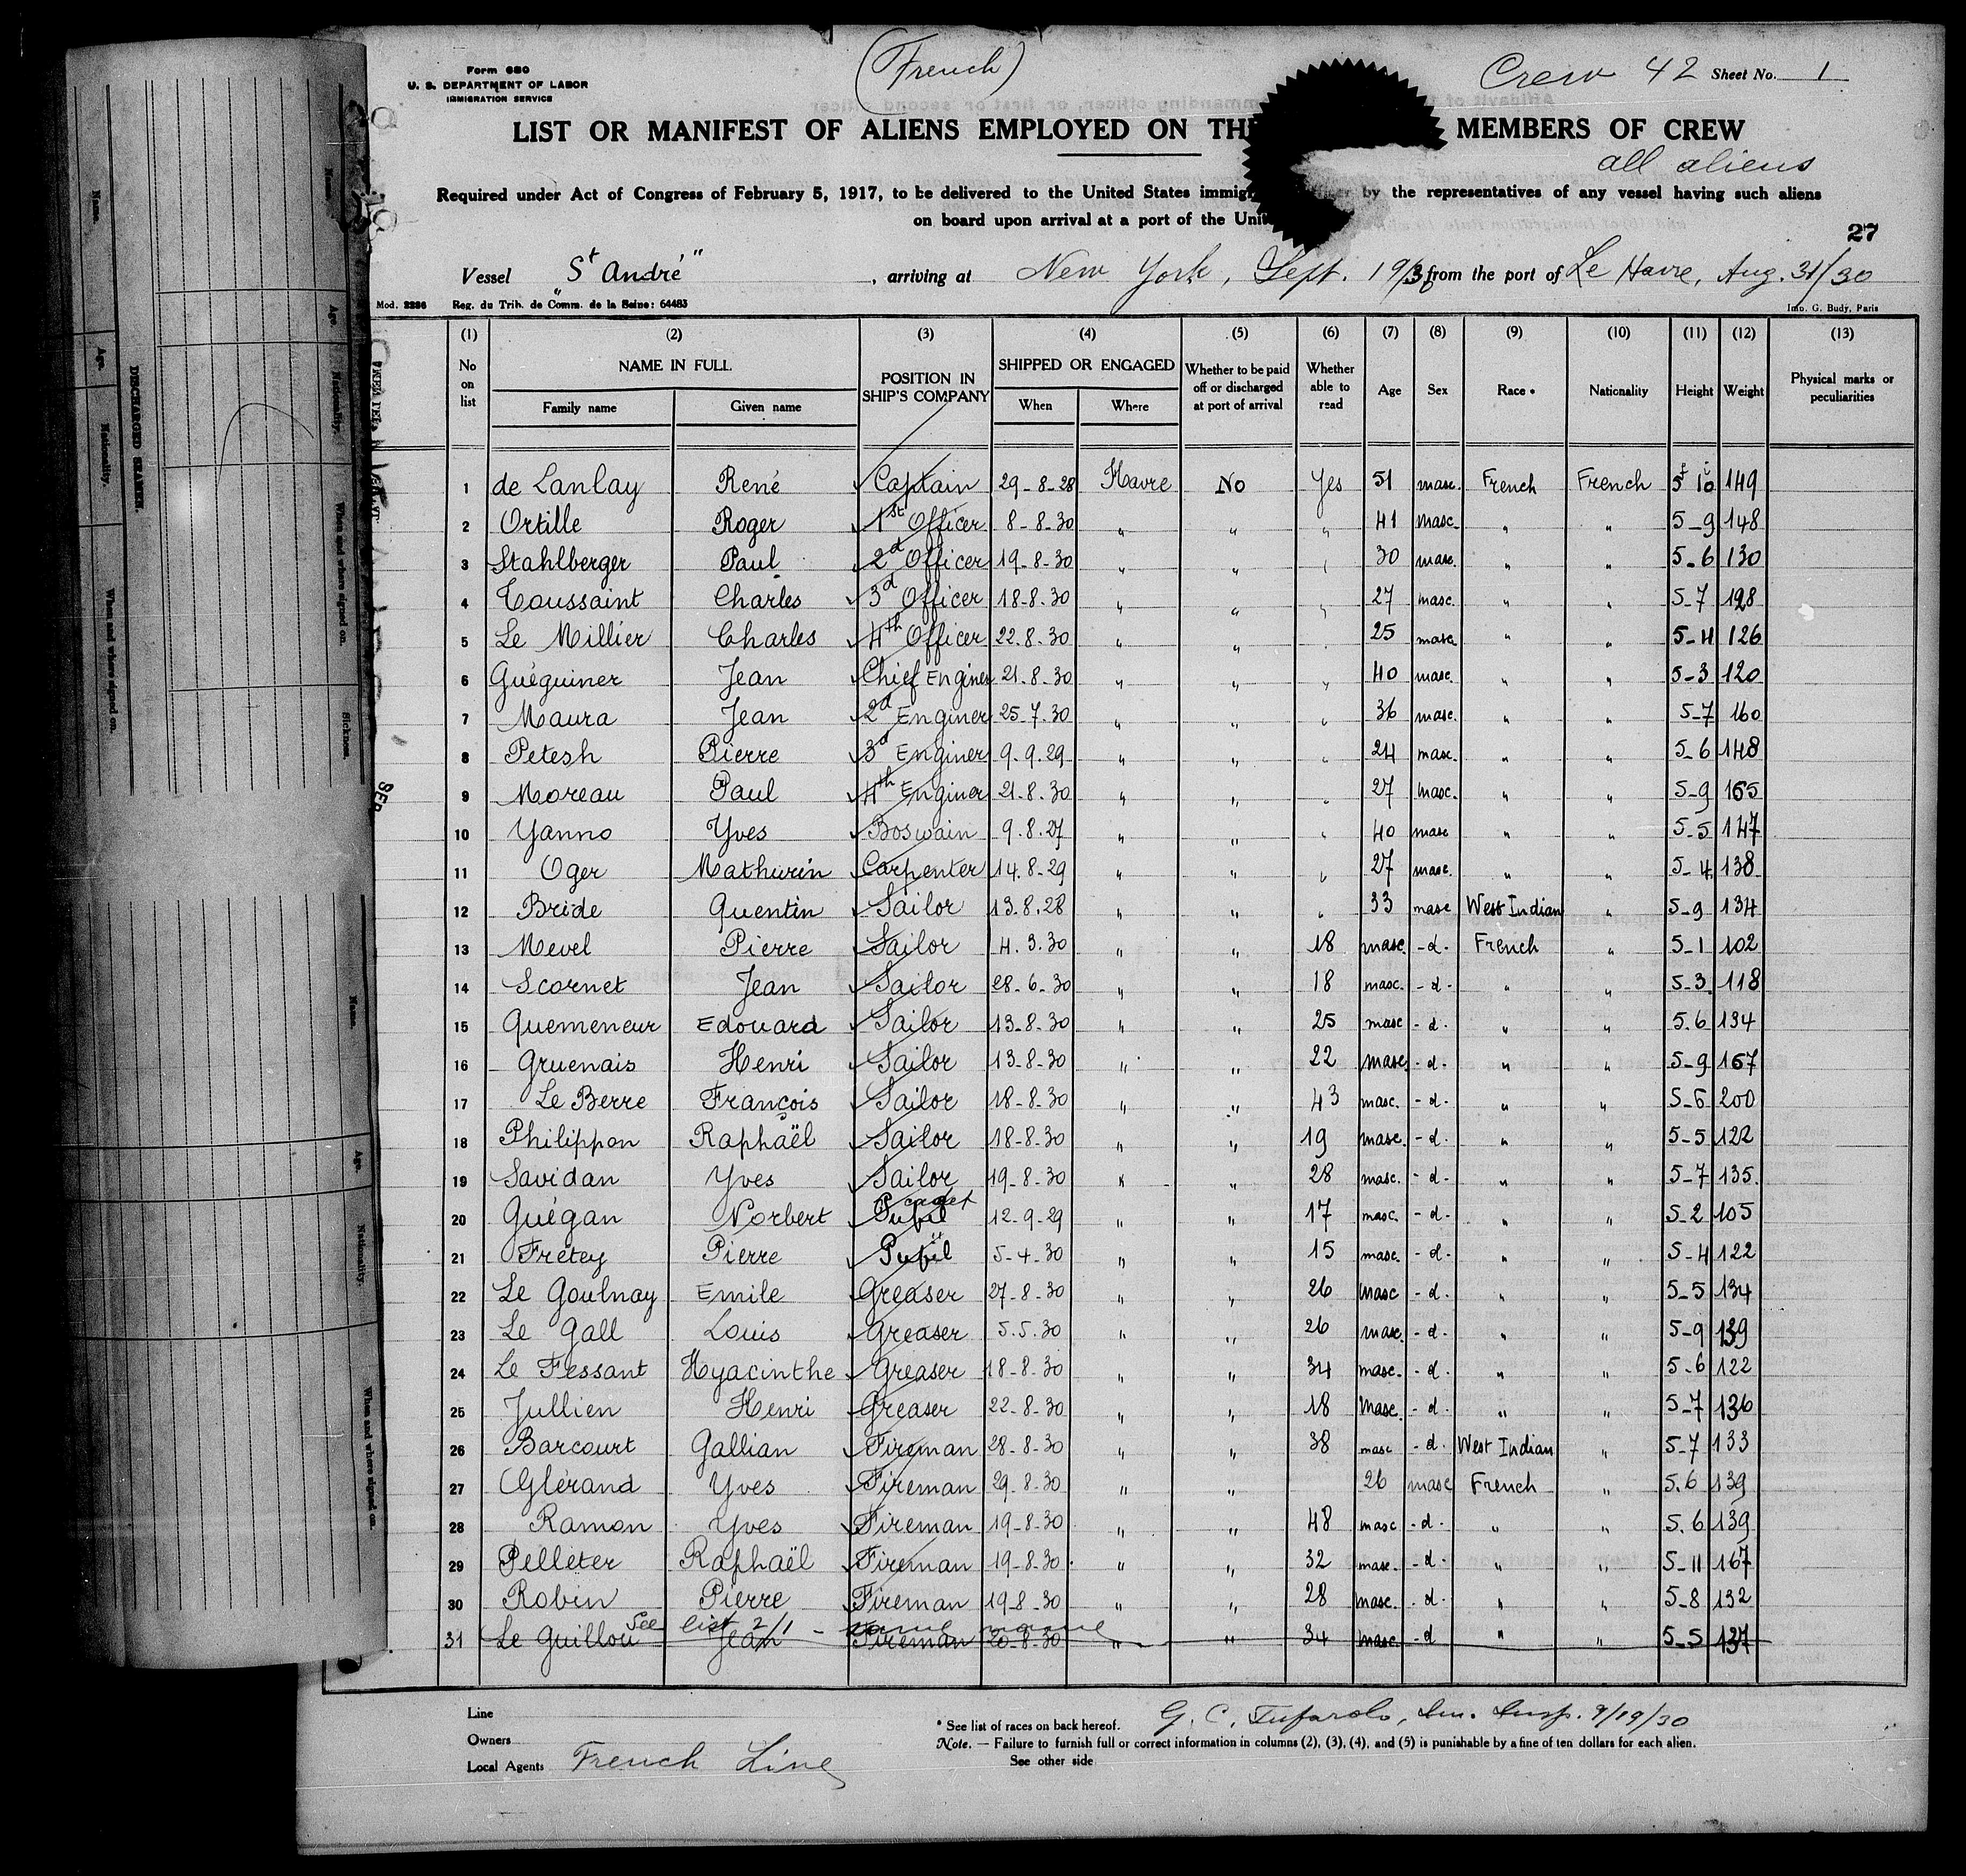 (French)
Form 680
U. S. DEPARTMENT OF LABOR
IMMIGRATION SERVICE
Crew 42 Sheet No. 1
LIST OR MANIFEST OF ALIENS EMPLOYED ON TH MEMBERS OF CREW
all aliens
Required under Act of Congress of February 5, 1917, to be delivered to the United States immigr by the representatives of any vessel having such aliens
on board upon arrival at a port of the Unit
27
Vessel "St André", arriving at New York, Sept. 19/30 from the port of Le Havre, Aug. 31/30
Mod. 2286 Reg. du Trib. de Comm. de la Seine: 64483 Imp. G. Budy, Paris
(1) (2) (3) (4) (5) (6) (7) (8) (9) (10) (11) (12) (13)
No on list NAME IN FULL POSITION IN SHIP'S COMPANY SHIPPED OR ENGAGED Whether to be paid off or discharged at port of arrival Whether able to read Age Sex Race * Nationality Height Weight Physical marks or peculiarities
Family name Given name When Where
1 de Lanlay René Captain 29-8-28 Havre No Yes 51 masc. French French 5 10 149
2 Ortille Roger 1st Officer 8-8-30 " " " 41 masc. " " 5-9 148
3 Stahlberger Paul 2d Officer 19-8-30 " " " 30 masc. " " 5-6 130
4 Toussaint Charles 3d Officer 18-8-30 " " " 27 masc. " " 5-7 128
5 Le Millier Charles 4th Officer 22.8.30 " " " 25 masc " " 5-4 126
6 Guéguiner Jean Chief Enginer 21.8.30 " " " 40 masc. " " 5-3 120
7 Maura Jean 2d Enginer 25.7.30 " " " 36 masc. " " 5-7 160
8 Petesh Pierre 3d Enginer 9.9.29 " " " 24 masc. " " 5-6 148
9 Moreau Paul 4th Enginer 21.8.30 " " " 27 masc. " " 5-9 165
10 Yanno Yves Boswain 9.8.27 " " " 40 masc " " 5-5 147
11 Oger Mathurin Carpenter 14.8-29 " " " 27 masc. " " 5-4 138
12 Bride Quentin Sailor 13.8.28 " " " 33 masc West Indian " 5-9 134
13 Mevel Pierre Sailor 4.3.30 " " 18 masc. -d- French " 5-1 102
14 Scornet Jean Sailor 28-6-30 " " 18 masc. -d- " " 5-3 118
15 Quemeneur Edouard Sailor 13-8-30 " " 25 masc -d- " " 5.6 134
16 Gruenais Henri Sailor 13-8-30 " " 22 masc -d- " " 5-9 167
17 Le Berre François Sailor 18-8.30 " " 43 masc. -d- " " 5-6 200
18 Philippon Raphaël Sailor 18-8-30 " " 19 masc. -d- " " 5-5 122
19 Savidan Yves Sailor 19-8-30 " " 28 masc. -d- " " 5-7 135
20 Guégan Norbert Pupil cadet 12-9-29 " " 17 masc. -d- " " 5-2 105
21 Frétey Pierre Pupil " 5-4-30 " " 15 masc. -d- " " 5-4 122
22 Le Goulnay Emile Greaser 27-8-30 " " 26 masc -d- " " 5-5 134
23 Le Gall Louis Greaser 5.5.30 " " 26 masc. -d- " " 5-9 139
24 Le Fessant Hyacinthe Greaser 18-8-30 " " 34 masc. -d- " " 5-6 122
25 Jullien Henri Greaser 22-8-30 " " 18 masc. -d- " " 5-7 136
26 Barcourt Gallian Fireman 28-8-30 " " 38 masc -d- West Indian " 5-7 133
27 Glérand Yves Fireman 29.8.30 " " 26 masc French " 5.6 139
28 Ramon Yves Fireman 19-8.30 " " 48 masc -d- " " 5.6 139
29 Pelleter Raphaël Fireman 19-8.30 " " 32 masc. -d- " " 5-11 167
30 Robin Pierre Fireman 19-8-30 " " 28 masc. -d- " " 5-8 132
See list 2/1 - same name
31 Le Guillou Jean Fireman 20-8-30 " " 34 masc. -d " " 5-5 137
Line
Owners
Local Agents French Line
* See list of races on back hereof. G. C. Tufarolo, Im. Insp. 9/19/30
Note. — Failure to furnish full or correct information in columns (2), (3), (4), and (5) is punishable by a fine of ten dollars for each alien.
See other side
Name.
Age.
Nationality.
When and where signed on.
DISCHARGED SEAMEN.
Name.
Age.
Nationality.
When and where signed on.
Sickness.
Name.
Age.
Nationality.
When and where signed on.
SEP